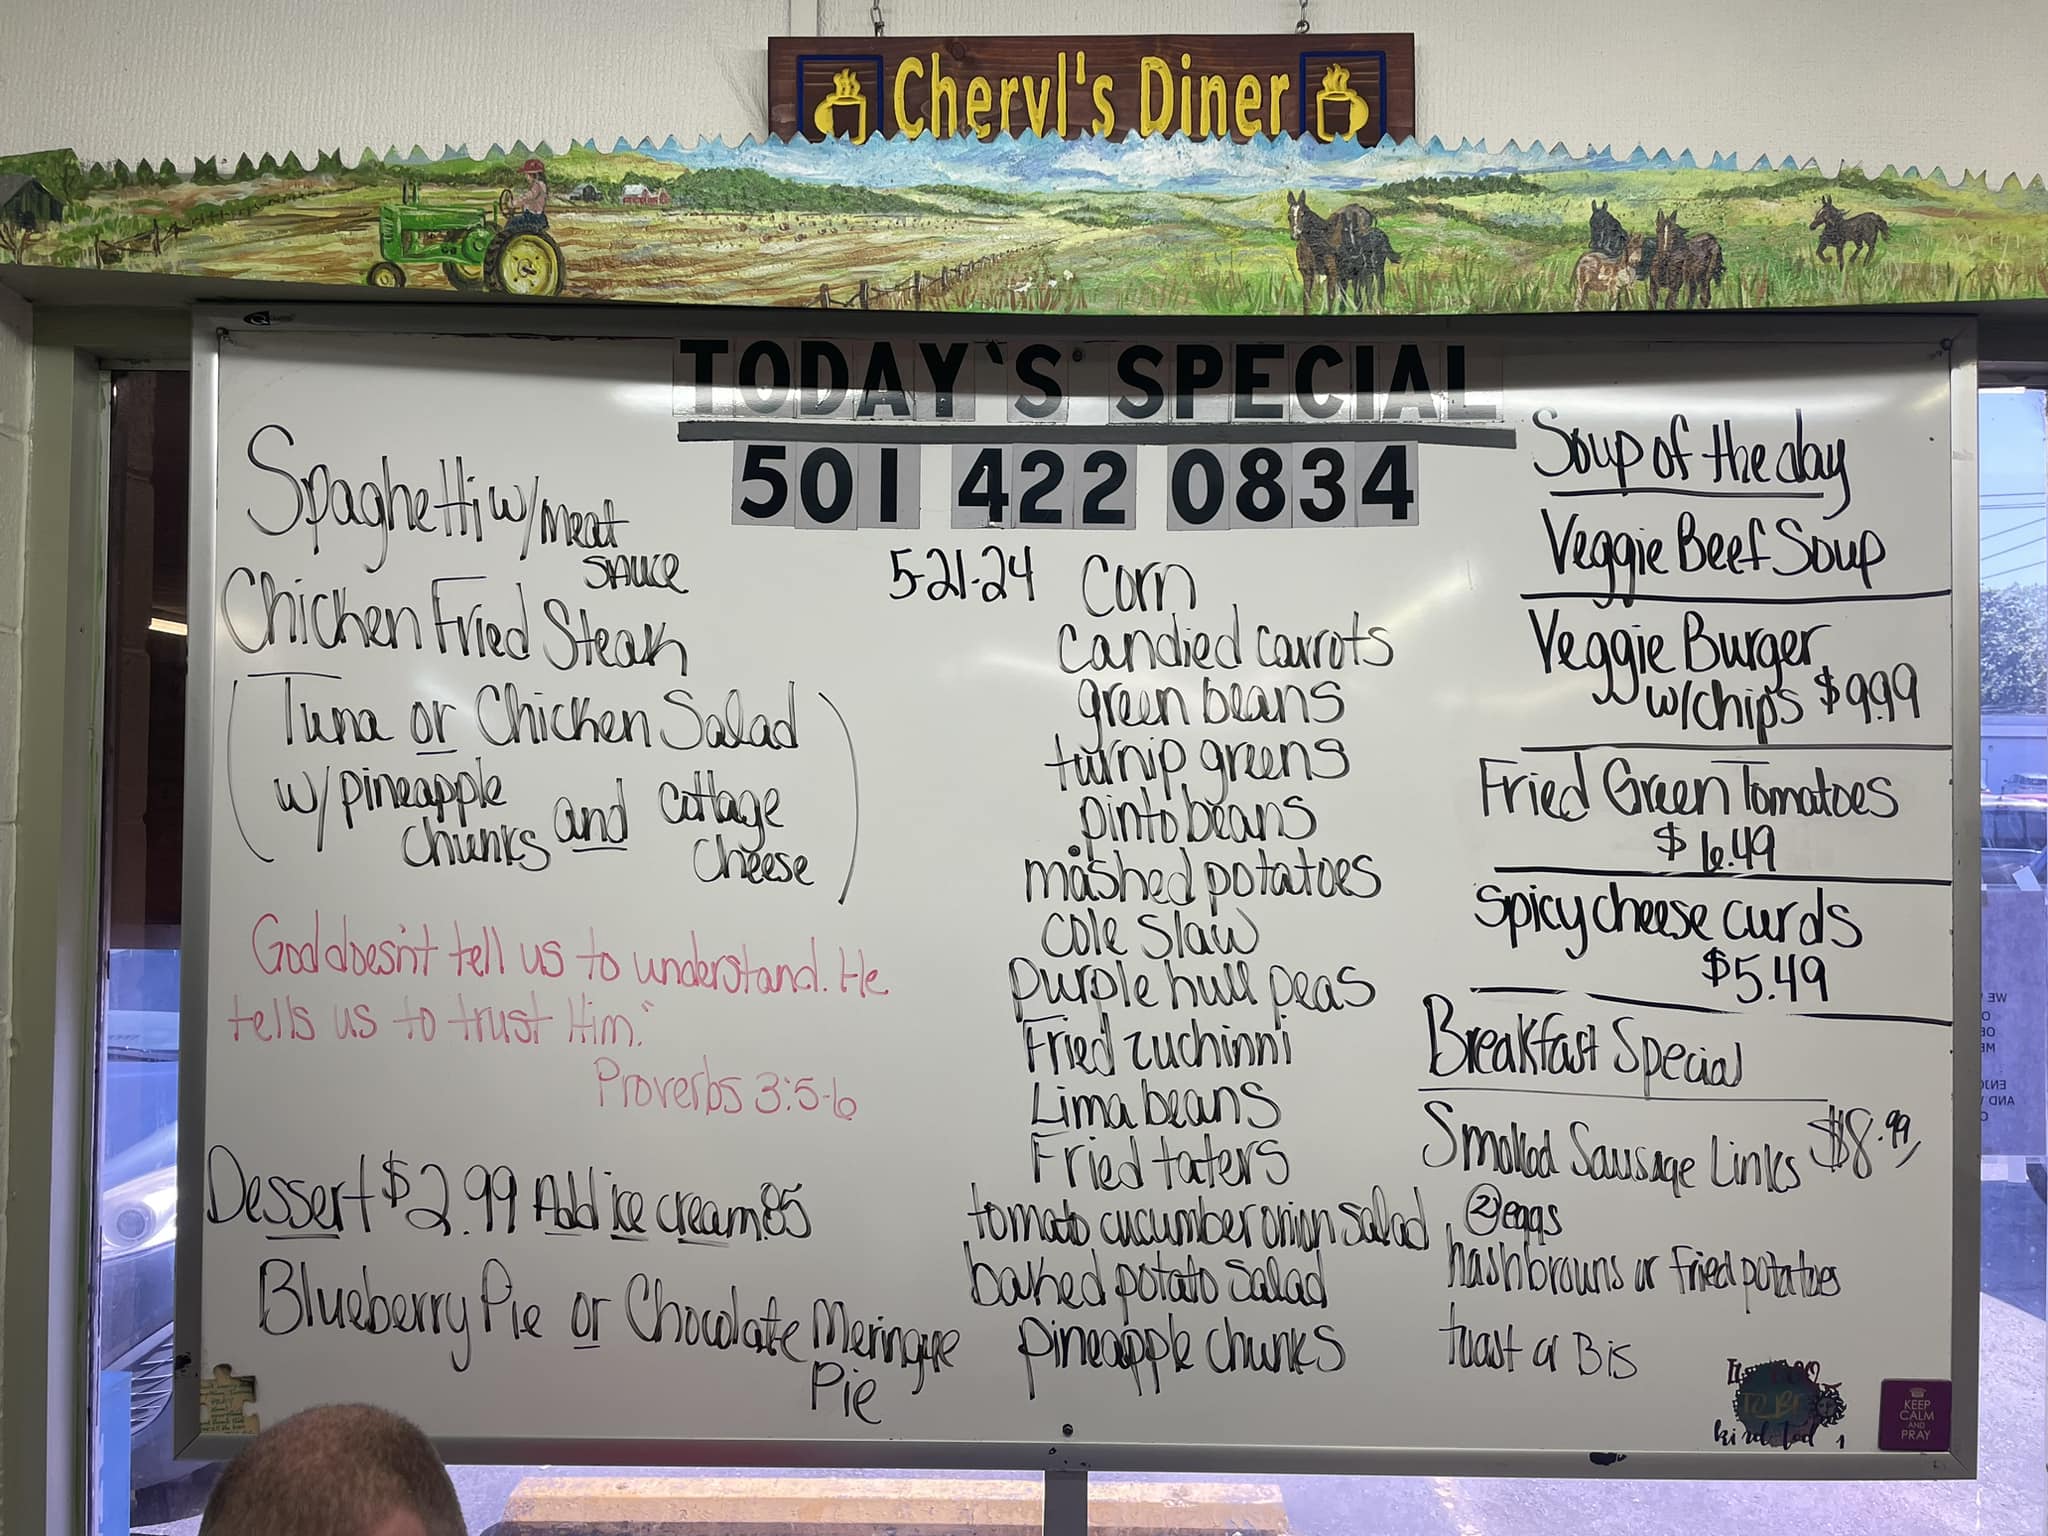 Cheryl's Diner
TODAY'S SPECIAL
501 422 0834
5-21-24
Spaghetti w/meat
sauce
Chicken Fried Steak
(Tuna or Chicken Salad
w/pineapple
chunks and cottage
cheese)
God doesn't tell us to understand. He
tells us to trust Him."
Proverbs 3:5-6
Dessert $2.99 Add ice cream .85
Blueberry Pie or Chocolate Meringue
Pie
Corn
candied carrots
green beans
turnip greens
pinto beans
mashed potatoes
cole slaw
purple hull peas
Fried zuchinni
Lima beans
Fried taters
tomato cucumber onion salad
baked potato salad
pineapple chunks
Soup of the day
Veggie Beef Soup
Veggie Burger
w/chips $9.99
Fried Green Tomatoes
$6.49
Spicy cheese curds
$5.49
Breakfast Special
Smoked Sausage Links $8.99
② eggs
hashbrowns or fried potatoes
toast or Bis
KEEP
CALM
AND
PRAY